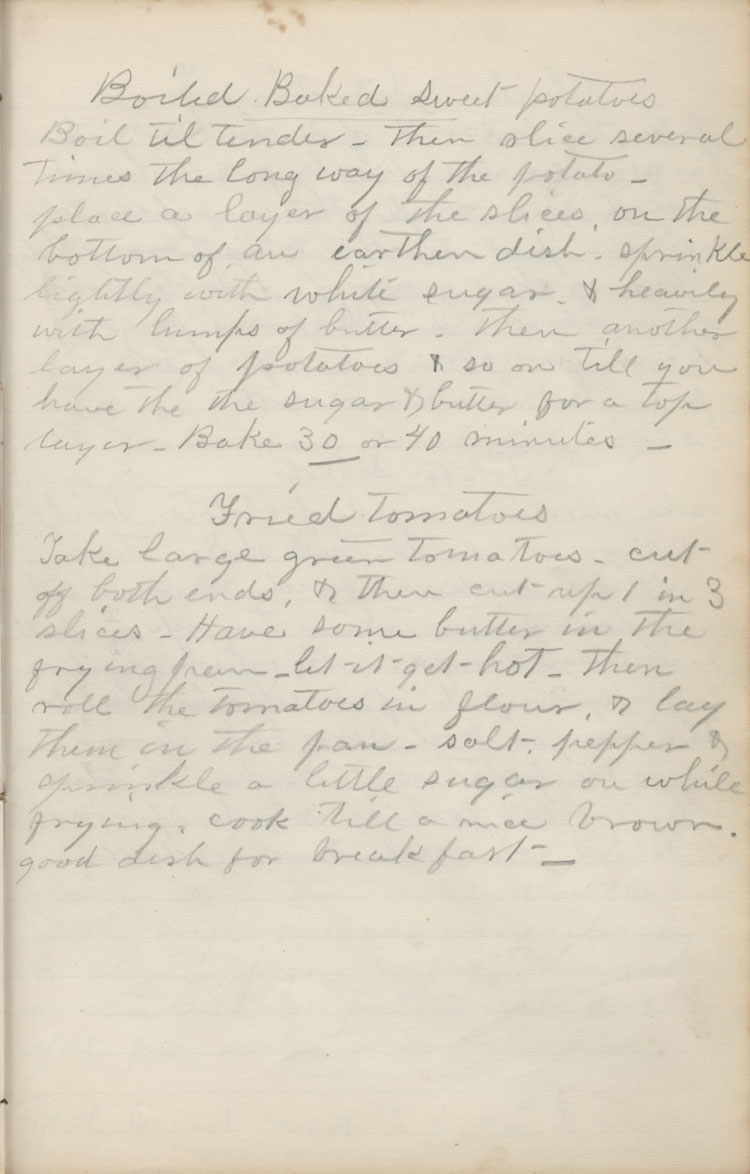 Boiled Baked sweet potatoes
Boil til tender - then slice several
times the long way of the potato -
place a layer of the slices, on the
bottom of an earthen dish. sprinkle
lightly with white sugar. & heavily
with lumps of butter - then another
layer of potatoes & so on till you
have the the sugar & butter for a top
layer - Bake 30 or 40 minutes -
Fried tomatoes
Take large green tomatoes - cut
off both ends, & then cut up 1 in 3
slices - Have some butter in the
frying pan - let-it-get-hot - then
roll the tomatoes in flour, & lay
them in the pan - salt. pepper &
sprinkle a little sugar on while
frying. cook till a nice brown.
good dish for breakfast -